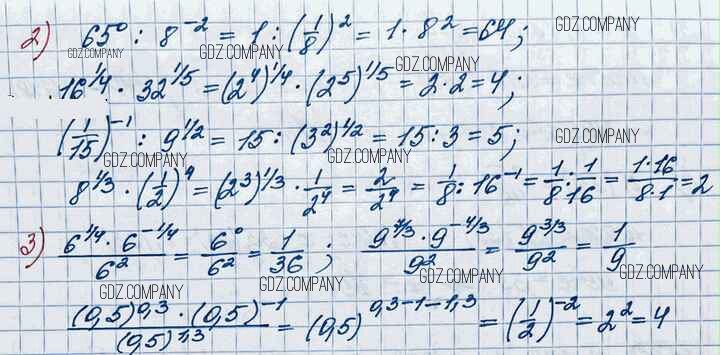 2) 65⁰ : 8⁻² = 1 : (1/8)² = 1 · 8² = 64;
GDZ.COMPANY GDZ.COMPANY GDZ.COMPANY
16^1/4 · 32^1/5 = (2⁴)^1/4 · (2⁵)^1/5 = 2 · 2 = 4;
GDZ.COMPANY
(1/15)⁻¹ : 9^1/2 = 15 : (3²)^1/2 = 15 : 3 = 5;
GDZ.COMPANY GDZ.COMPANY GDZ.COMPANY
8^1/3 · (1/2)⁴ = (2³)^1/3 · 1/2⁴ = 2/2⁴ = 1/8 : 16⁻¹ = 1/8 : 1/16 = 1·16/8·1 = 2
GDZ.COMPANY
3) 6^1/4 · 6^-1/4 / 6² = 6⁰/6² = 1/36; 9^7/3 · 9^-4/3 / 9² = 9^3/3 / 9² = 1/9
GDZ.COMPANY GDZ.COMPANY GDZ.COMPANY
(0,5)^0,3 · (0,5)⁻¹ / (0,5)^1,3 = (0,5)^0,3-1-1,3 = (1/2)⁻² = 2² = 4